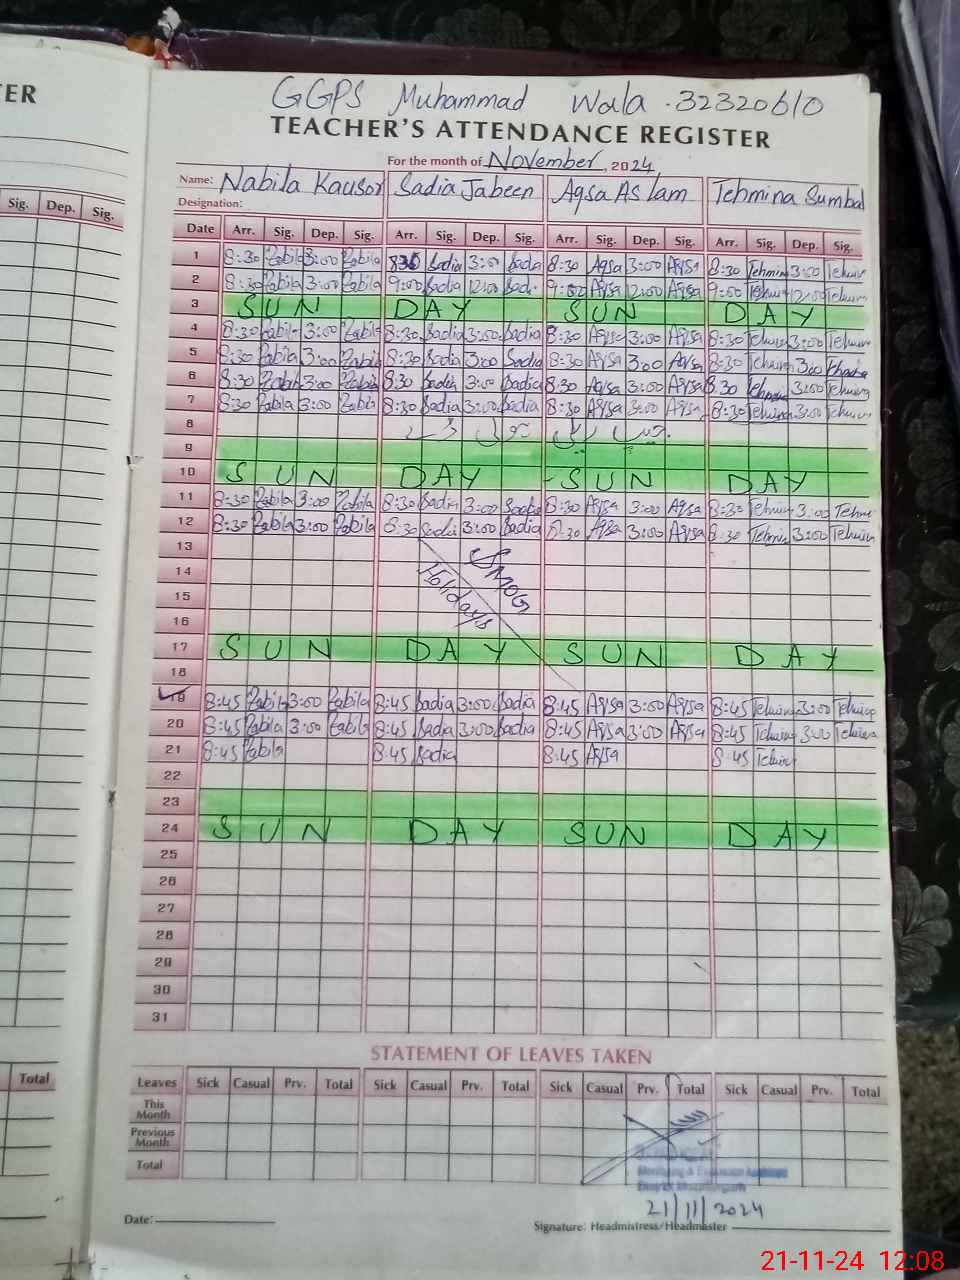 TER
Sig. Dep. Sig.
Total
GGPS Muhammad Wala . 32320610
TEACHER'S ATTENDANCE REGISTER
For the month of November, 2024
Name: Nabila Kausor Sadia Jabeen Aqsa Aslam Tehmina Sumbal
Designation:
Date Arr. Sig. Dep. Sig. Arr. Sig. Dep. Sig. Arr. Sig. Dep. Sig. Arr. Sig. Dep. Sig.
1 8:30 Nabila 3:00 Nabila 8:30 Sadia 3:00 Sadia 8:30 Aqsa 3:00 Aqsa 8:30 Tehmin 3:00 Tehmin
2 8:30 Nabila 3:00 Nabila 9:00 Sadia 12:00 Sadia 9:00 Aqsa 12:00 Aqsa 9:00 Tehmin 12:00 Tehmin
3 SUN DAY SUN DAY
4 8:30 Nabila 3:00 Nabila 8:30 Sadia 3:00 Sadia 8:30 Aqsa 3:00 Aqsa 8:30 Tehmin 3:00 Tehmin
5 8:30 Nabila 3:00 Nabila 8:30 Sadia 3:00 Sadia 8:30 Aqsa 3:00 Aqsa 8:30 Tehmin 3:00
6 8:30 Nabila 3:00 Nabila 8:30 Sadia 3:00 Sadia 8:30 Aqsa 3:00 Aqsa 8:30 Tehmin 3:00 Tehmin
7 8:30 Nabila 3:00 Nabila 8:30 Sadia 3:00 Sadia 8:30 Aqsa 3:00 Aqsa 8:30 Tehmin 3:00 Tehmin
8
9
10 SUN DAY SUN DAY
11 8:30 Nabila 3:00 Nabila 8:30 Sadia 3:00 Sadia 8:30 Aqsa 3:00 Aqsa 8:30 Tehmin 3:00 Tehmi
12 8:30 Nabila 3:00 Nabila 8:30 Sadia 3:00 Sadia 8:30 Aqsa 3:00 Aqsa 8:30 Tehmin 3:00 Tehmin
13
14 SMOG
15 Holidays
16
17 SUN DAY SUN DAY
18
19 8:45 Nabila 3:00 Nabila 8:45 Sadia 3:00 Sadia 8:45 Aqsa 3:00 Aqsa 8:45 Tehmin 3:00 Tehmin
20 8:45 Nabila 3:00 Nabila 8:45 Sadia 3:00 Sadia 8:45 Aqsa 3:00 Aqsa 8:45 Tehmin 3:00 Tehmin
21 8:45 Nabila 8:45 Sadia 8:45 Aqsa 8:45 Tehmin
22
23
24 SUN DAY SUN DAY
25
26
27
28
29
30
31
STATEMENT OF LEAVES TAKEN
Leaves Sick Casual Prv. Total Sick Casual Prv. Total Sick Casual Prv. Total Sick Casual Prv. Total
This Month
Previous Month
Total
Monitoring & Evaluation Assistant
District Muzaffargarh
21/11/2024
Date:
Signature: Headmistress/Headmaster
21-11-24 12:08